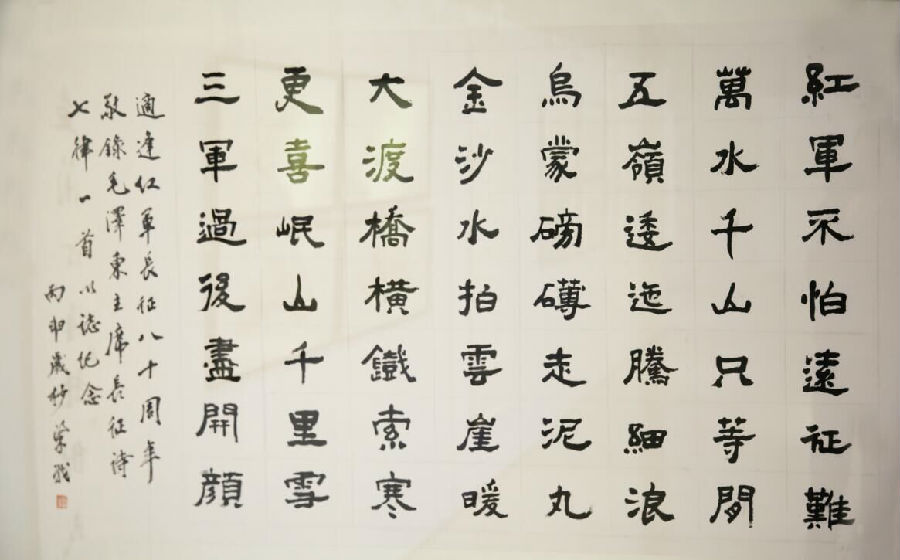 紅軍不怕遠征難
萬水千山只等閒
五嶺逶迤騰細浪
烏蒙磅礴走泥丸
金沙水拍雲崖暖
大渡橋橫鐵索寒
更喜岷山千里雪
三軍過後盡開顏
適逢红軍長征八十周年
敬錄毛澤東主席長征诗
七律一首以誌纪念
丙申歲杪